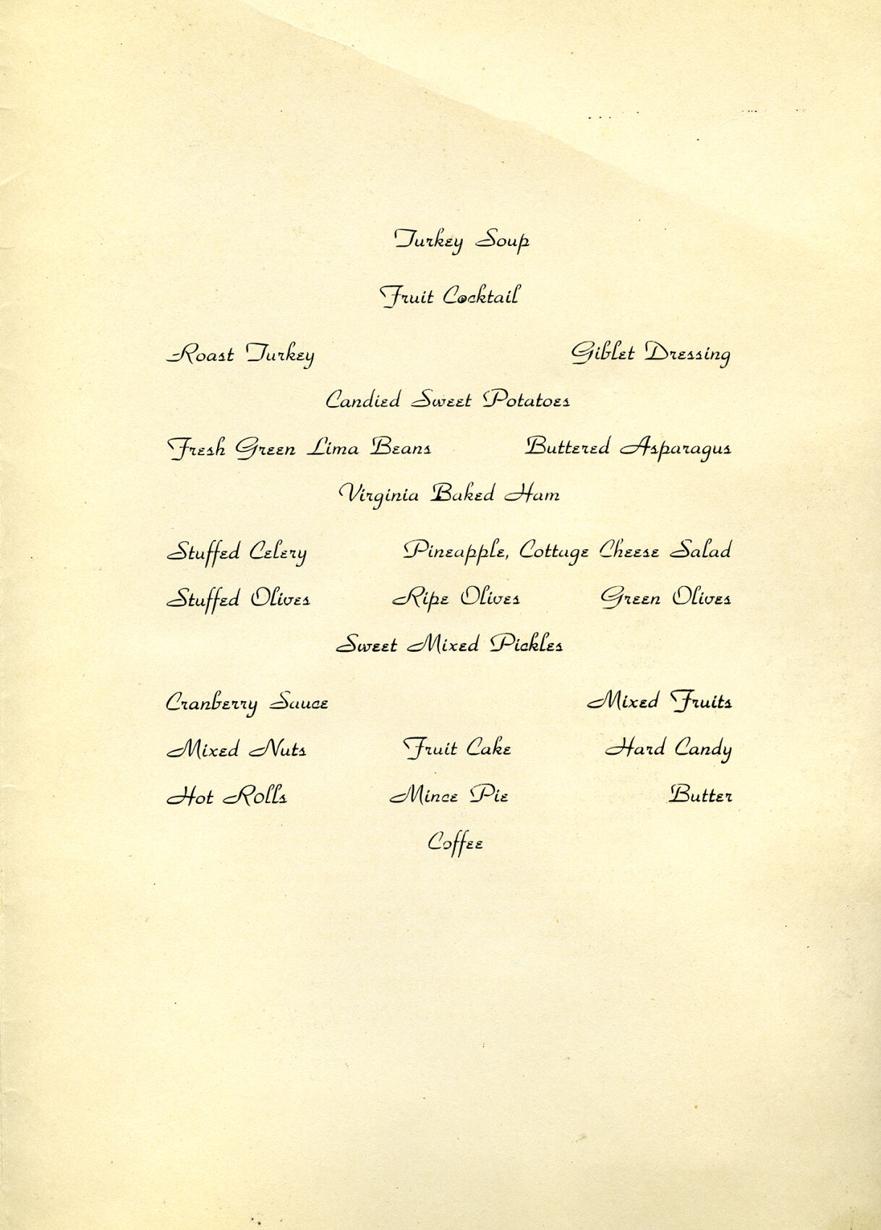 Turkey Soup
Fruit Cocktail
Roast Turkey Giblet Dressing
Candied Sweet Potatoes
Fresh Green Lima Beans Buttered Asparagus
Virginia Baked Ham
Stuffed Celery Pineapple, Cottage Cheese Salad
Stuffed Olives Ripe Olives Green Olives
Sweet Mixed Pickles
Cranberry Sauce Mixed Fruits
Mixed Nuts Fruit Cake Hard Candy
Hot Rolls Mince Pie Butter
Coffee